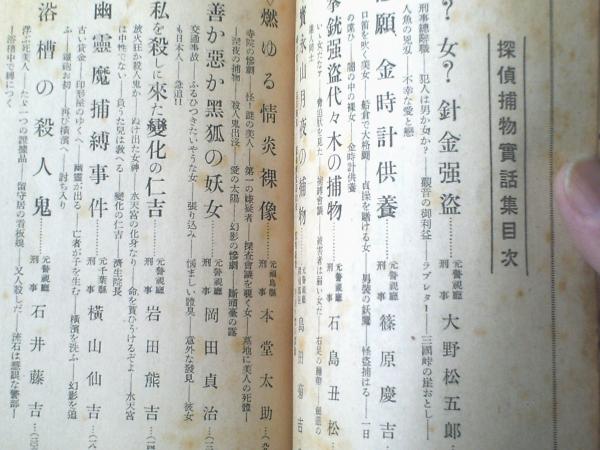 探偵捕物實話集目次
？女？針金强盜………元警視廳刑事 大野松五郎
刑事總辭職 犯人は男か女か？ 觀音の御利益――ラブレター――三國峠の崖おとし――
人魚の悪夢 不幸な愛と戀
願、金時計供養……元警視廳刑事 篠原慶吉
日笛を吹く美女――船倉で大格鬪――貞操を賭ける女 男裝の妖魔――怪盜捕はる――一日
闇の中の裸女 金時計供養
拳銃强盜代々木の捕物……元警視廳刑事 石島丑松
月夜の捕物
燃ゆる情炎裸像………元福島縣刑事 本堂太助
寺院の慘劇 怪！謎の美人――第一の嫌疑者 搜査會議を覗く女――墓地に美人の死體――
深夜の捕物 殺人鬼出沒 愛の太陽 幻影の慘劇 斷頭臺の露
善か惡か黑狐の妖女……元警視廳刑事 岡田貞治
交通事故 ふるひつきたいやうな女 張り込み 惱ましい體臭 意外な發見 彼女
も日本人 急追!!
私を殺しに來た變化の仁吉……元警視廳刑事 岩田熊吉
放火狂か殺人鬼か ぬけ出た女神 水天宮の化身なり 命を貰ひうけるぞよ――水天宮
は中性でない――負うた兒は敎へる 變化の仁吉 濟生院長
幽靈魔捕縛事件………元千葉縣刑事 橫山仙吉
古い貸金――印形屋のゆくへ 幽靈が出る 亡者が子を生む 橫濱を洗ふ 幻影を追
ふ――鐵砲お初 再び橫濱へ 討ち入り
浴槽の殺人鬼………元警視廳刑事 石井藤吉
浮いた死美人――たゞ一つの證據品 留守居の看板娘――又人殺しだ――
――浴槽中で縛につく